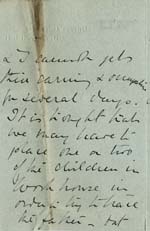 & I cannot get
for several days.
It is thought that
we may have to
place one or two
of the children in
Workhouse in
order try to trace
the father - but